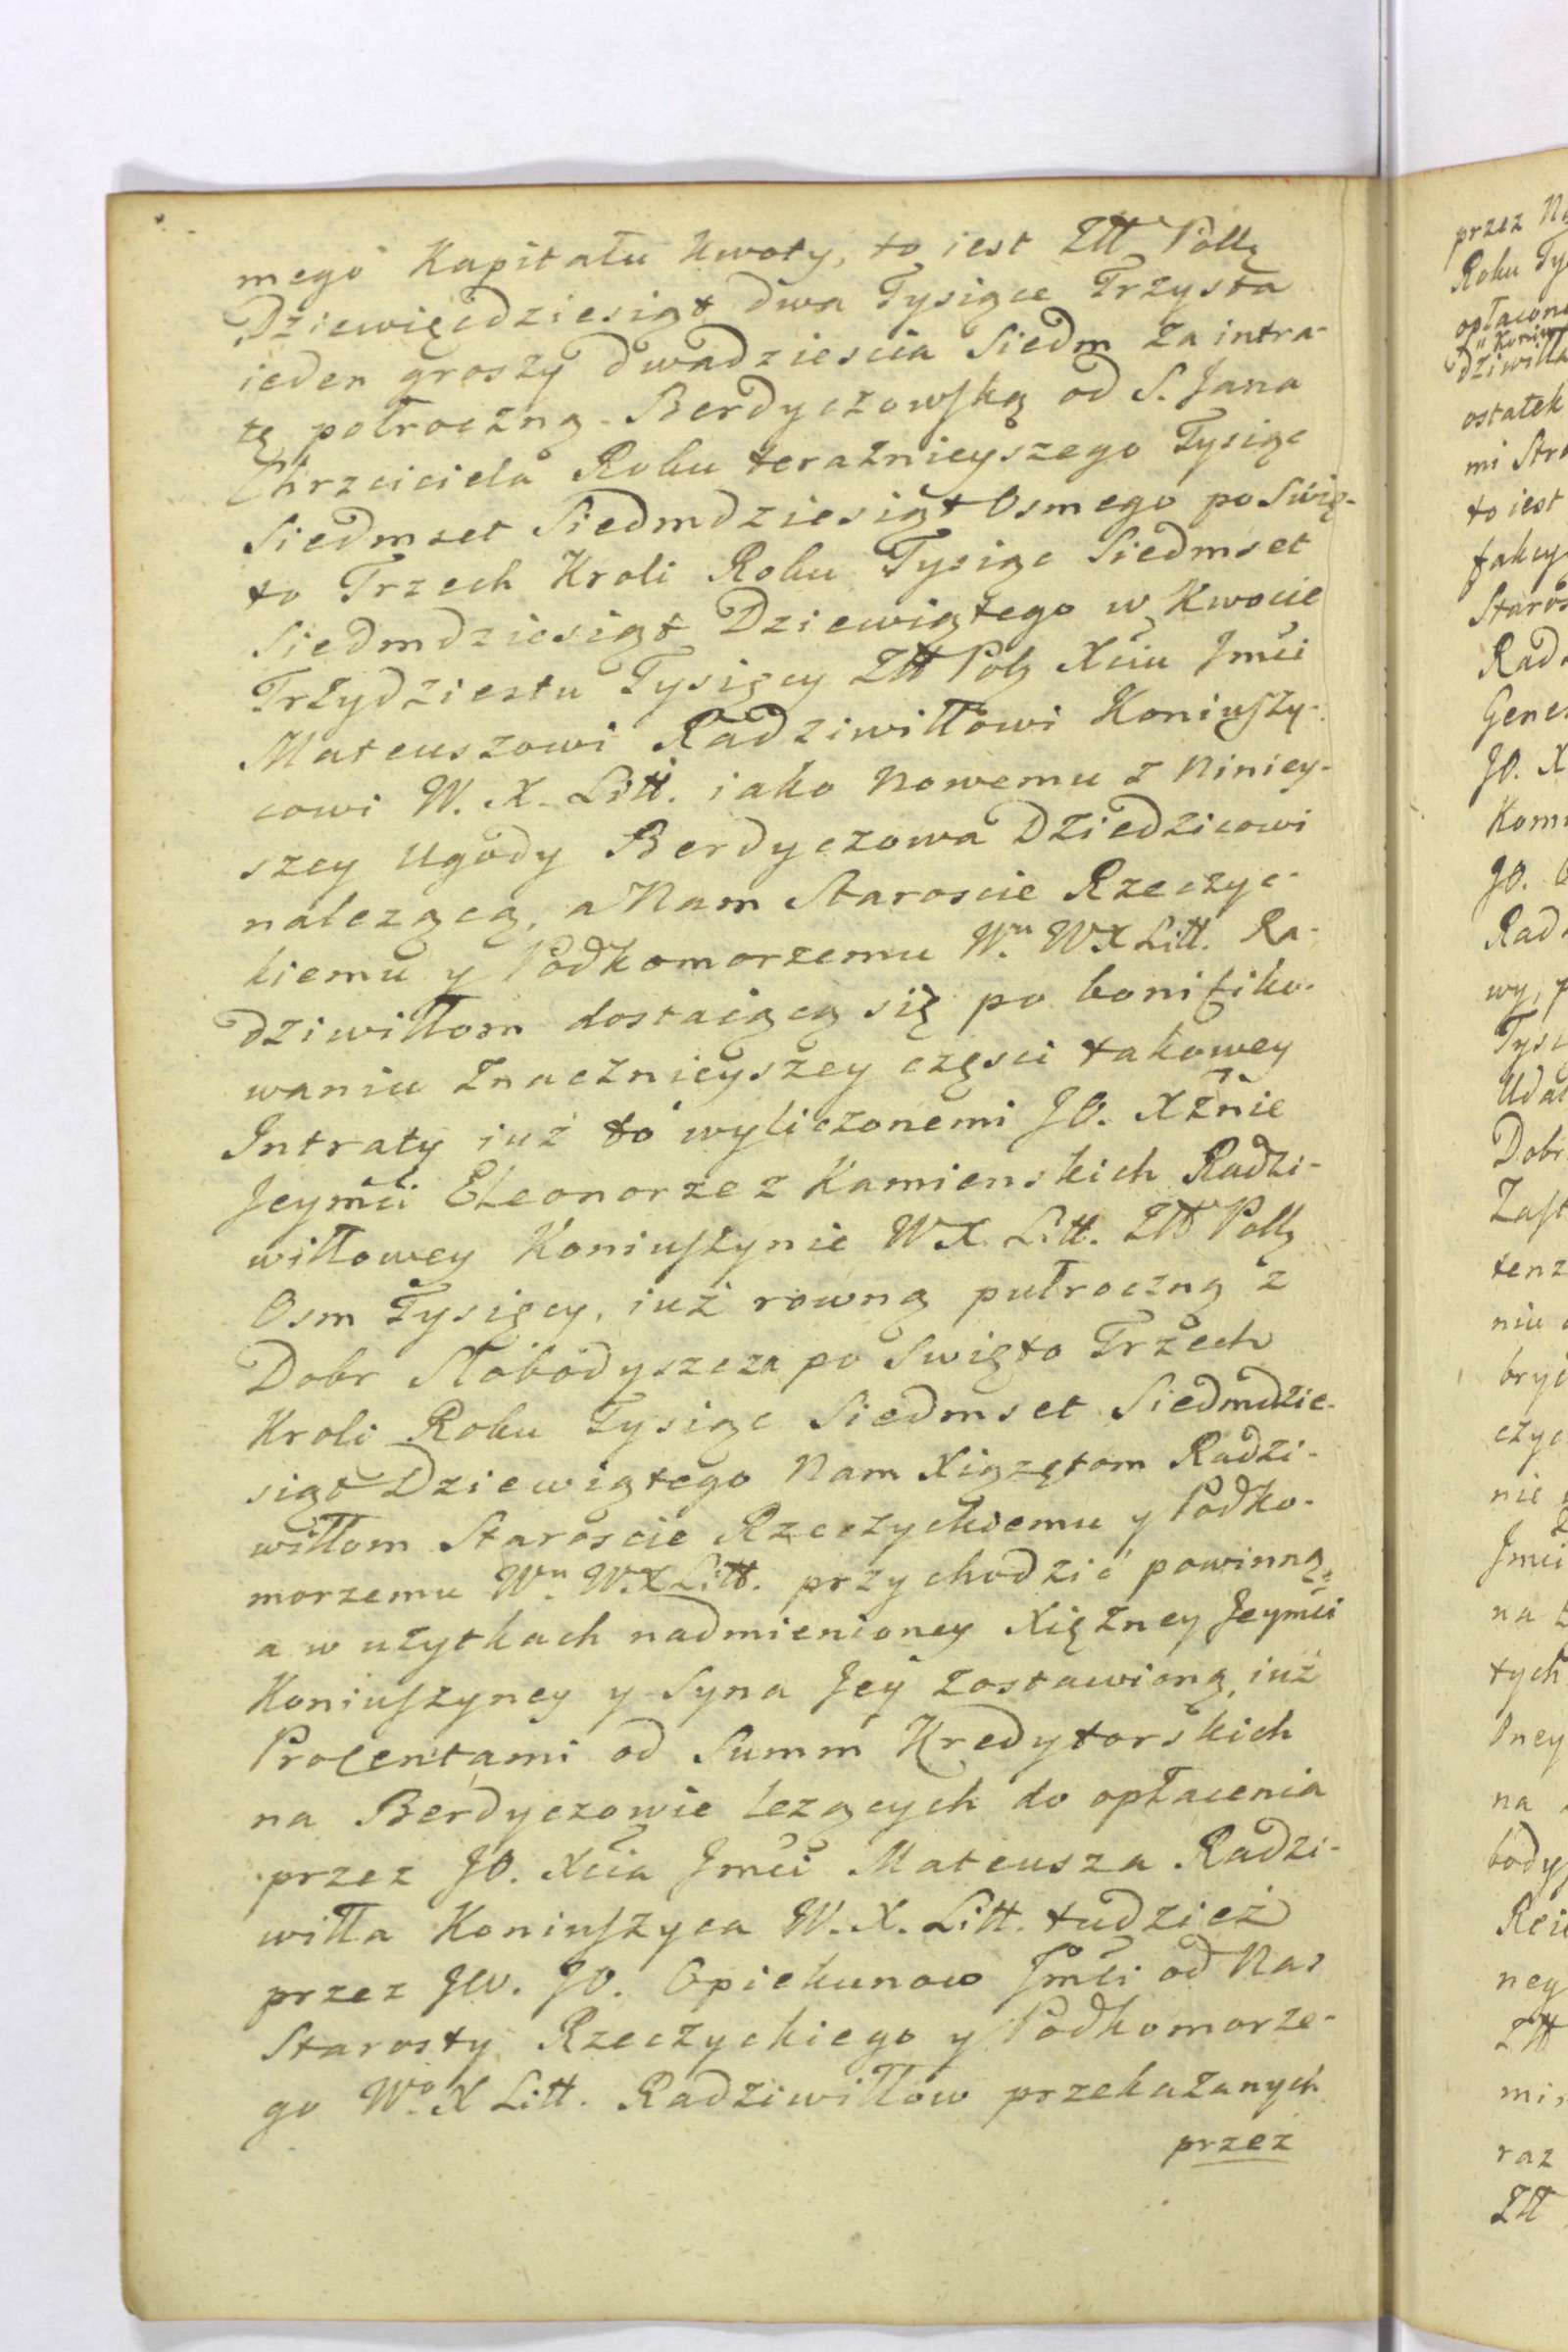 mego Kapitału Kwoty, to iest Złł Polł
Dziewięcdziesiąt dwa Tysiące Trzysta
ieden groszy dwadziescia Siedm za intra-
tę połroczną Berdyczowską od S. Jana
Chrzciciela Roku teraznieyszego Tysiąc
Siedmset Siedmdziesiąt Osmego po Swię-
to Trzech Kroli Roku Tysiąc Siedmset
Siedmdziesiąt Dziewiątego w Kwocie
Trzydziestu Tysięcy Złł Pol Xciu Jmci
Mateuszowi Radziwiłłowi Koniuszy-
cowi W. X. Litt. iako Nowemu z Niniey-
szey Ugody Berdyczowa Dziedzicowi
nalezącą, a Nam Staroscie Rzeczyc-
kiemu y Podkomorzemu Wu WX Litt. Ra-
dziwiłłom dostaiącą się po bonifiko-
waniu Znacznieyszey częsci takowey
Intraty iuż to wyliczonemi JO. Xżnie
Jeymci Eleonorze z Kamienskich Radzi-
wiłłowey Koniuszynie WX. Litt. Złł Polł
Osm Tysięcy, iuż rowną pułroczną z
Dobr Słobodyszcza po Swięto Trzech
Kroli Roku Tysiąc Siedmset Siedmdzie-
siąt Dziewiątego Nam Xiązętom Radzi-
wiłłom Staroscie Rzeczyckiemu y Podko-
morzemu Wu W.X Litt. przychodzić powinną,
a w uzytkach nadmienioney Xiężney Jeymci
Koniuszyney y Syna Jey zostawioną, iuż
Procentami od Summ Kredytorskich
na Berdyczowie lezących do opłacenia
przez JO. Xcia Jmci Mateusza Radzi-
wiłła Koniuszyca W. X. Litt. tudzież
przez JW. JO. Opiekunow Jmci od Nas
Starosty Rzeczyckiego y Podkomorze-
go Wo X Litt. Radziwiłłow przekazanych
przez
przez
Roku
ostatek
to iest